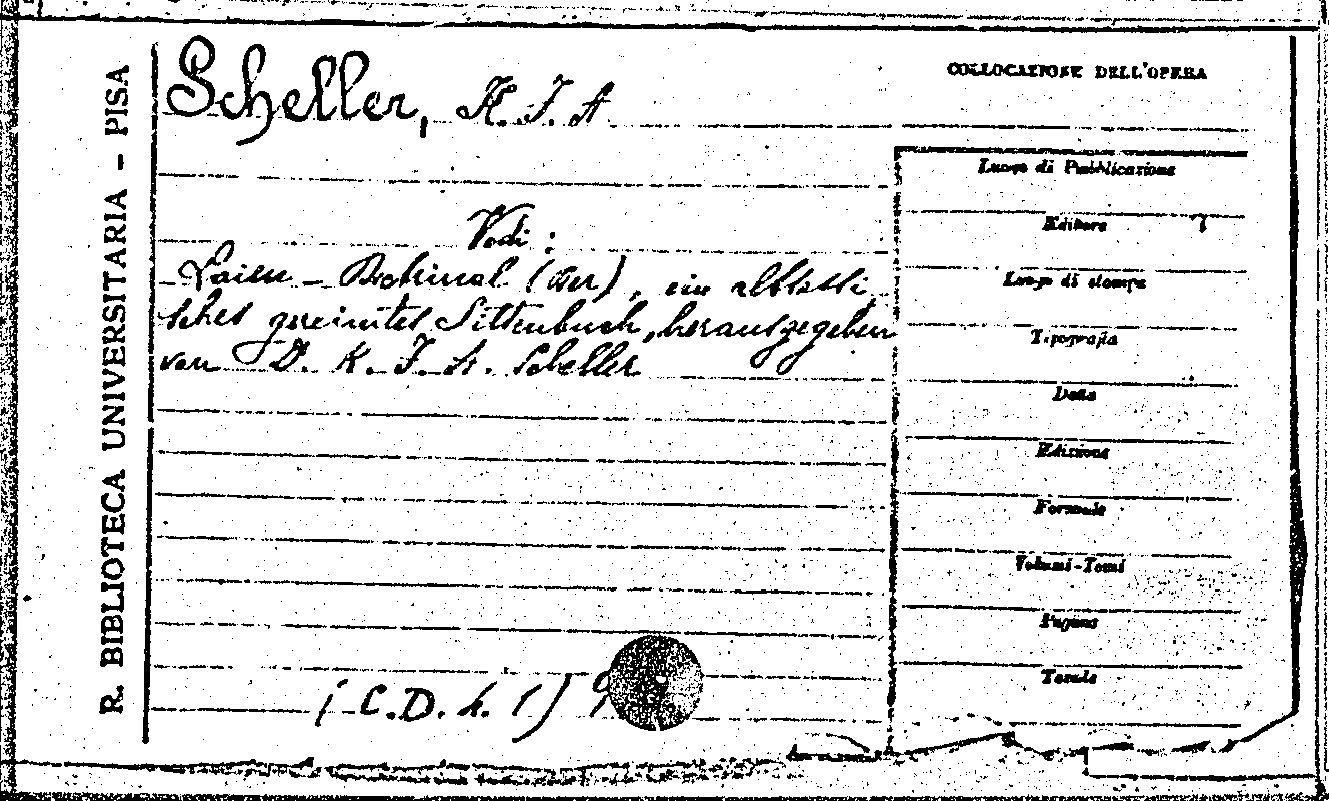 R. BIBLIOTECA UNIVERSITARIA - PISA
Scheller, K. F. A
COLLOCAZIONE DELL'OPERA
Vedi:
Laien - Doktrinal (Der), ein altsässi
sches gereimtes Sittenbuch, herausgegeben
von D. K. F. A. Scheller
Luogo di Pubblicazione
Editore
Luogo di stampa
Tipografia
Data
Edizione
Formale
Volumi-Tomi
Pagine
Tavole
C. D. h. 1) 9